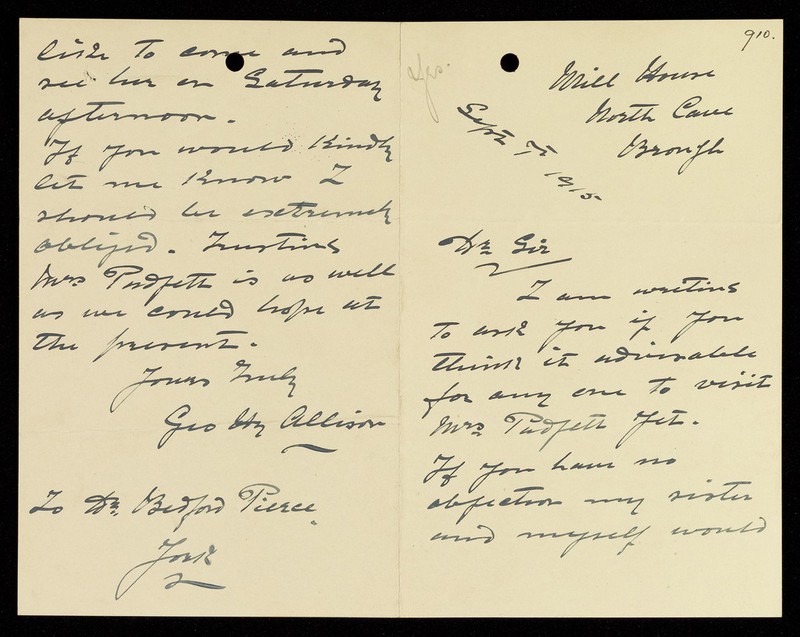 910.
Yes.
Mill House
North Cave
Brough
Sept 7th 1915
Dr Sir
I am writing
to ask you if you
think it advisable
for any one to visit
Mrs Padgett yet.
If you have no
objection my sister
and myself would
like to come and
see her on Saturday
afternoon.
If you would kindly
let me know I
should be extremely
obliged. Trusting
Mrs Padgett is as well
as we could hope at
the present.
Yours Truly
Geo Hy Allison
To Dr. Bedford Pierce
York